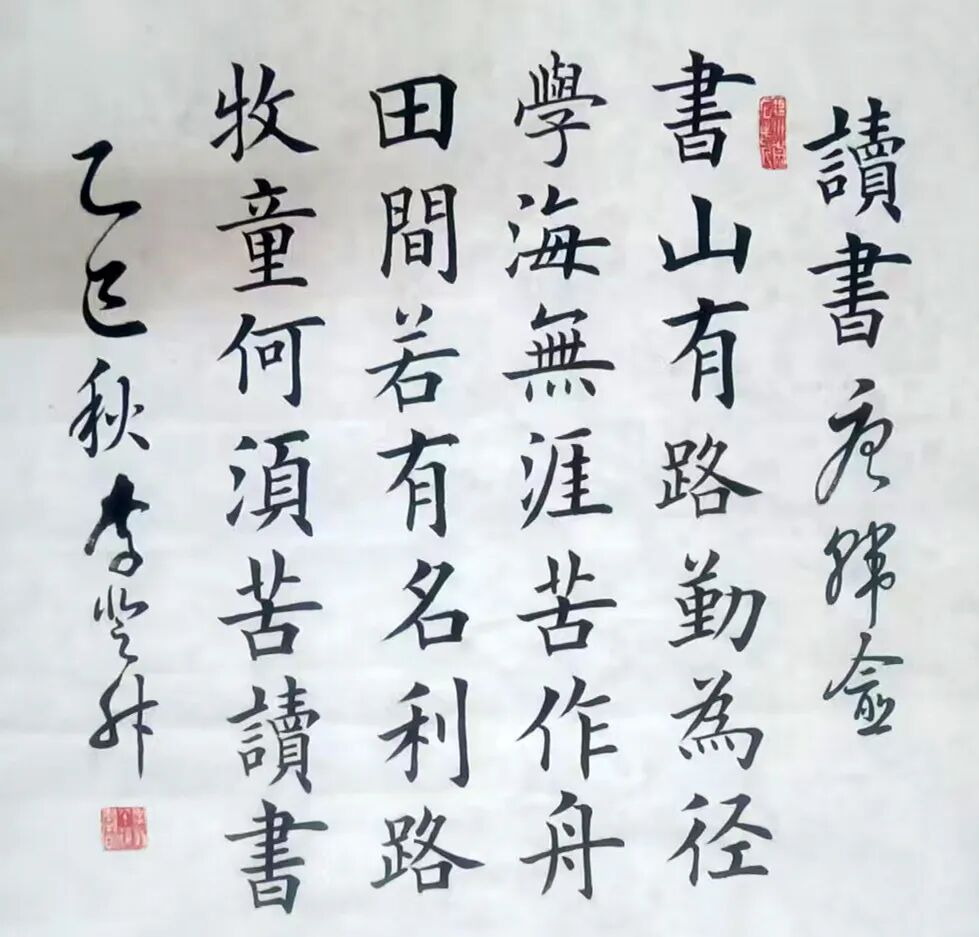 讀書 唐 韓愈
書山有路勤為径
學海無涯苦作舟
田間若有名利路
牧童何須苦讀書
乙巳秋李登